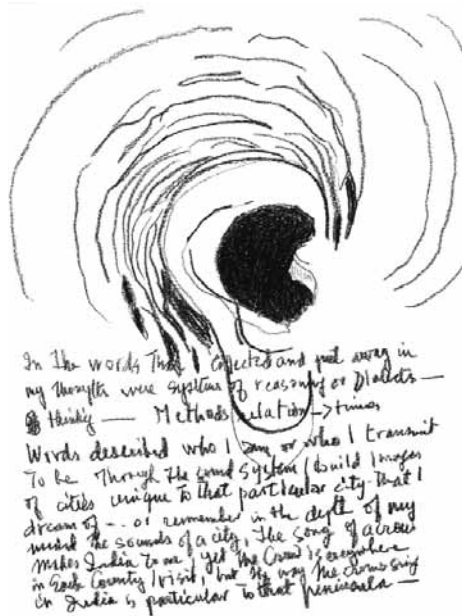 In the words That I collected and put away in
my thoughts were systems of reasoning or Dialects —
thinking — Methods relation → times
Words described who I am or who I transmit
To be Through The sound System I build Images
of cities unique to that particular city that I
dream of -- or remember in the depth of my
mind the sounds of a city, The song of a crow
makes India to me, yet the Crow is everywhere
in Each Country I visit, but the way the crows sing
in India is particular to that peninsula —